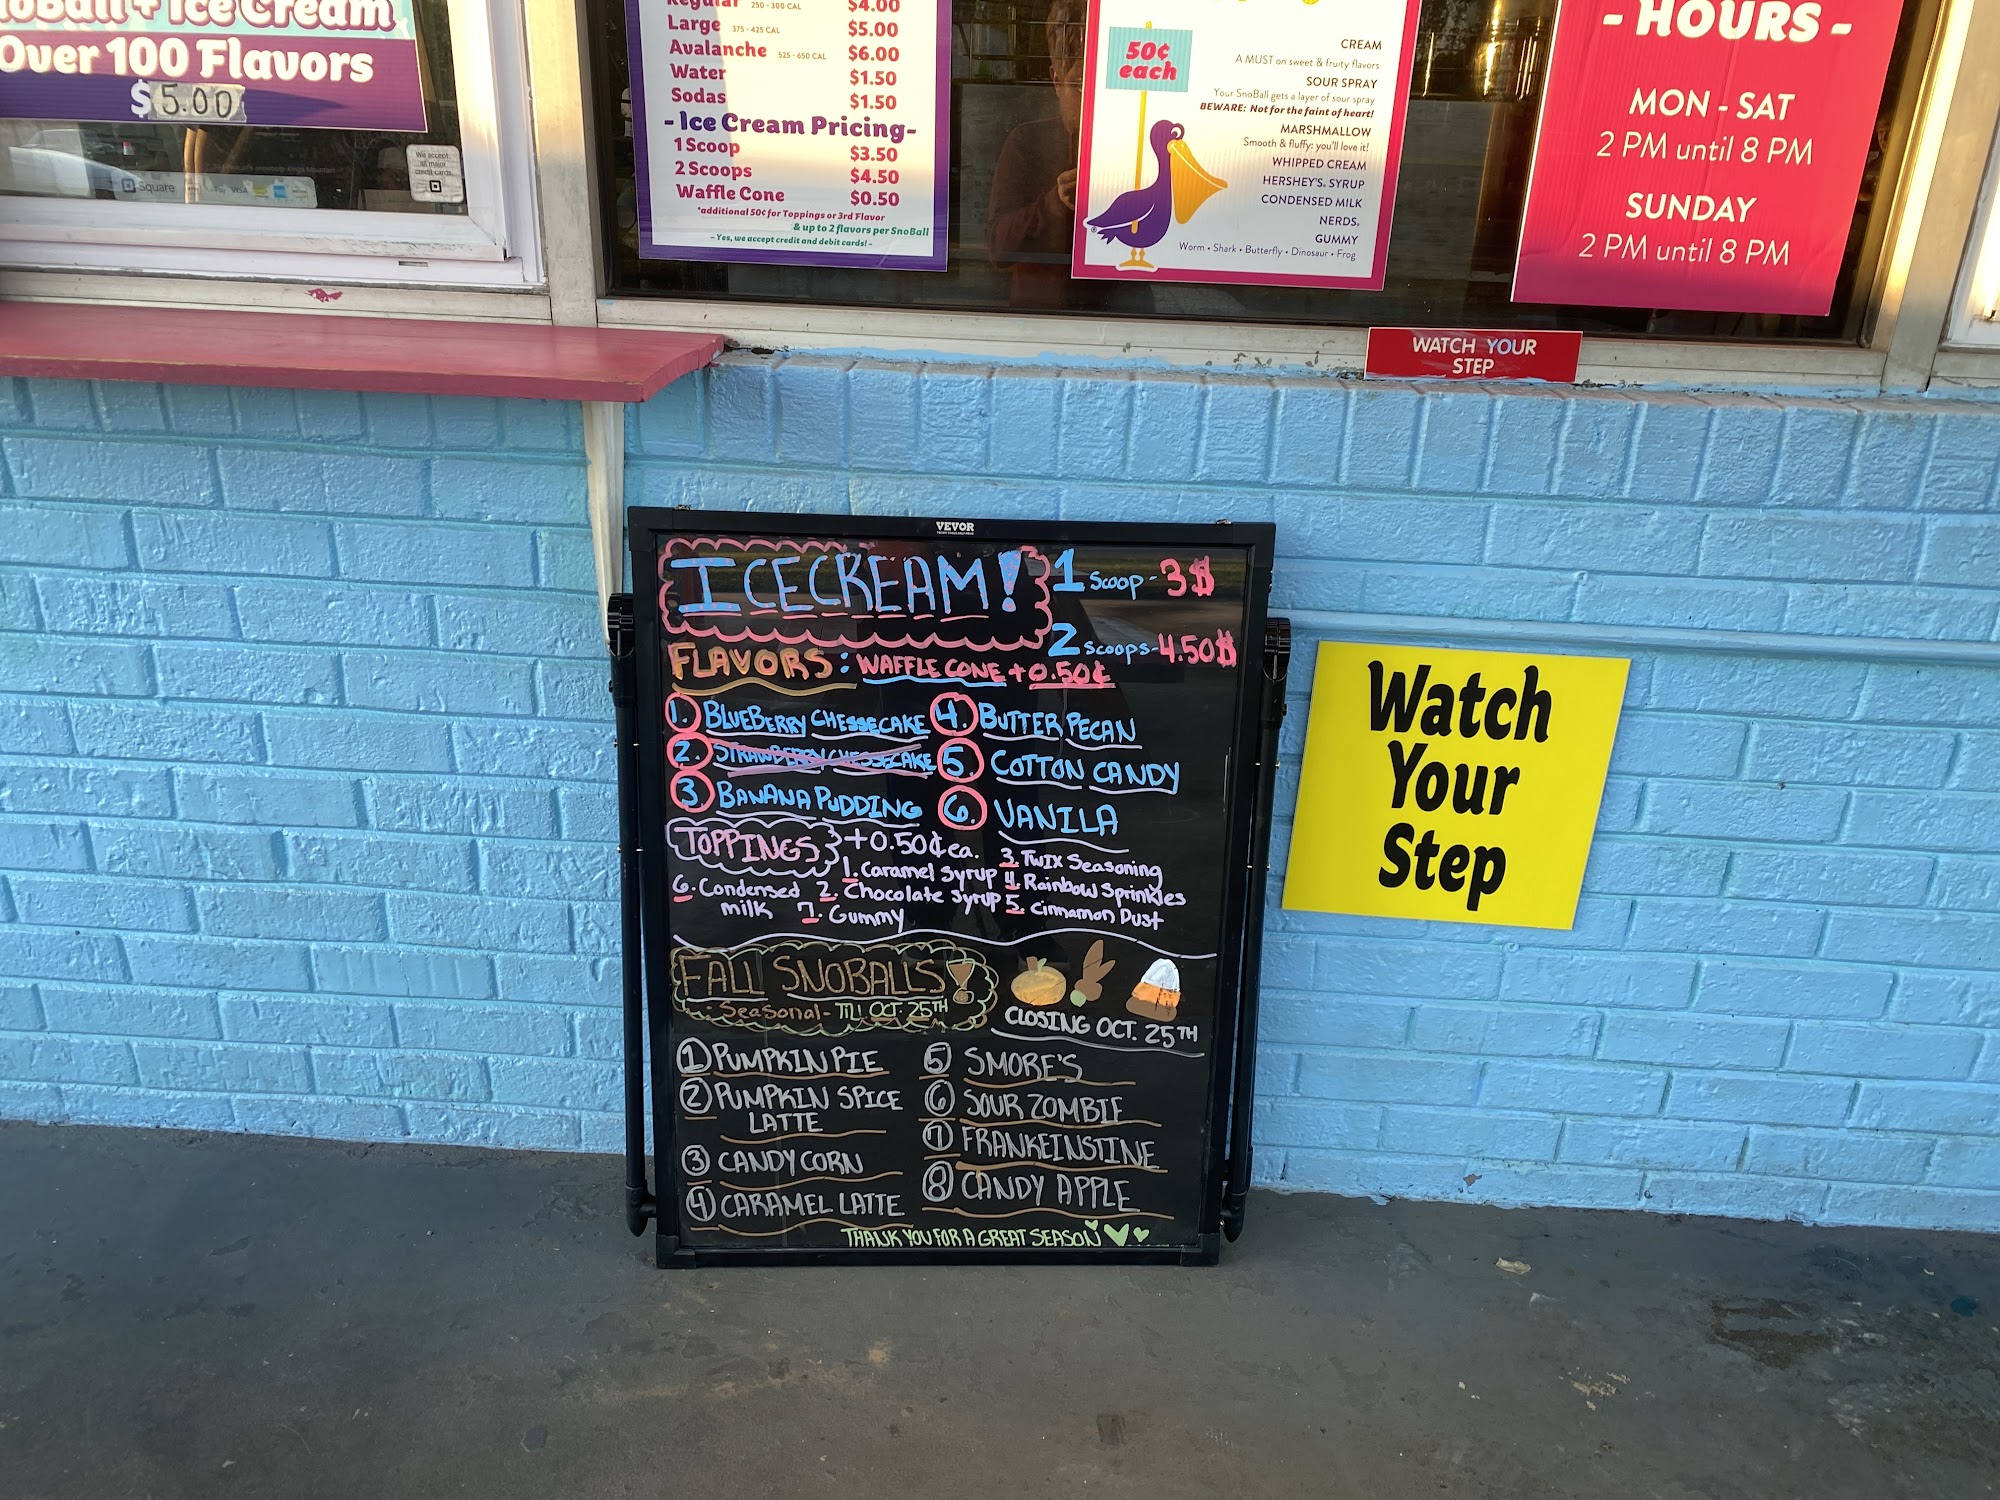 noBall + Ice Cream
Over 100 Flavors
$5.00
We accept
all major
credit cards.
Square
Pay VISA
Regular 250 - 300 CAL $4.00
Large 375 - 425 CAL $5.00
Avalanche 525 - 650 CAL $6.00
Water $1.50
Sodas $1.50
- Ice Cream Pricing-
1 Scoop $3.50
2 Scoops $4.50
Waffle Cone $0.50
*additional 50¢ for Toppings or 3rd Flavor
& up to 2 flavors per SnoBall
- Yes, we accept credit and debit cards! -
50¢
each
CREAM
A MUST on sweet & fruity flavors
SOUR SPRAY
Your SnoBall gets a layer of sour spray
BEWARE: Not for the faint of heart!
MARSHMALLOW
Smooth & fluffy: you'll love it!
WHIPPED CREAM
HERSHEY'S® SYRUP
CONDENSED MILK
NERDS®
GUMMY
Worm • Shark • Butterfly • Dinosaur • Frog
- HOURS -
MON - SAT
2 PM until 8 PM
SUNDAY
2 PM until 8 PM
WATCH YOUR
STEP
VEVOR
ICECREAM!
1 Scoop - 3$
2 Scoops - 4.50$
FLAVORS: WAFFLE CONE + 0.50¢
1. BLUEBERRY CHESSECAKE
2. STRAWBERRY CHESSECAKE
3. BANANA PUDDING
4. BUTTER PECAN
5. COTTON CANDY
6. VANILA
TOPPINGS +0.50¢ ea.
1. Caramel Syrup
2. Chocolate Syrup
3. TWIX Seasoning
4. Rainbow Sprinkles
5. Cinnamon Dust
6. Condensed
milk
7. Gummy
FALL SNOBALLS!
Seasonal - Til OCT. 25TH
CLOSING OCT. 25TH
1 PUMPKIN PIE
2 PUMPKIN SPICE
LATTE
3 CANDY CORN
4 CARAMEL LATTE
5 SMORE'S
6 SOUR ZOMBIE
7 FRANKEINSTINE
8 CANDY APPLE
THANK YOU FOR A GREAT SEASON
Watch
Your
Step